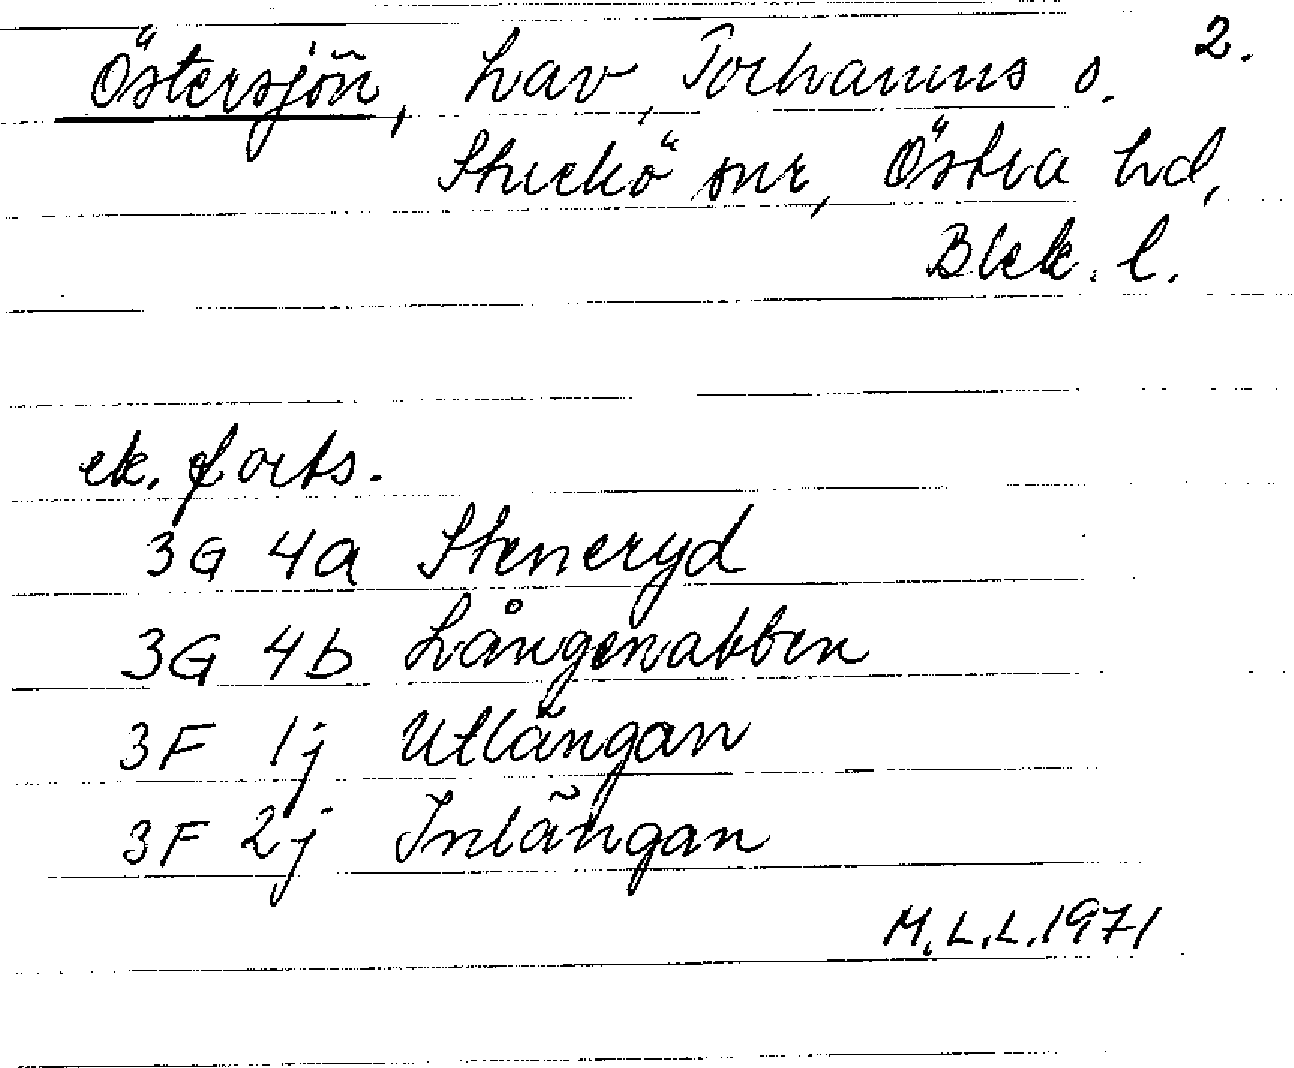 2.
Östersjön, hav, Torhamns o.
Sturkö snr, Östra hd,
Blek. l.
ek. forts.
3G 4a Steneryd
3G 4b Långenabben
3F 1j Utlängan
3F 2j Inlängan
M.L.L. 1971